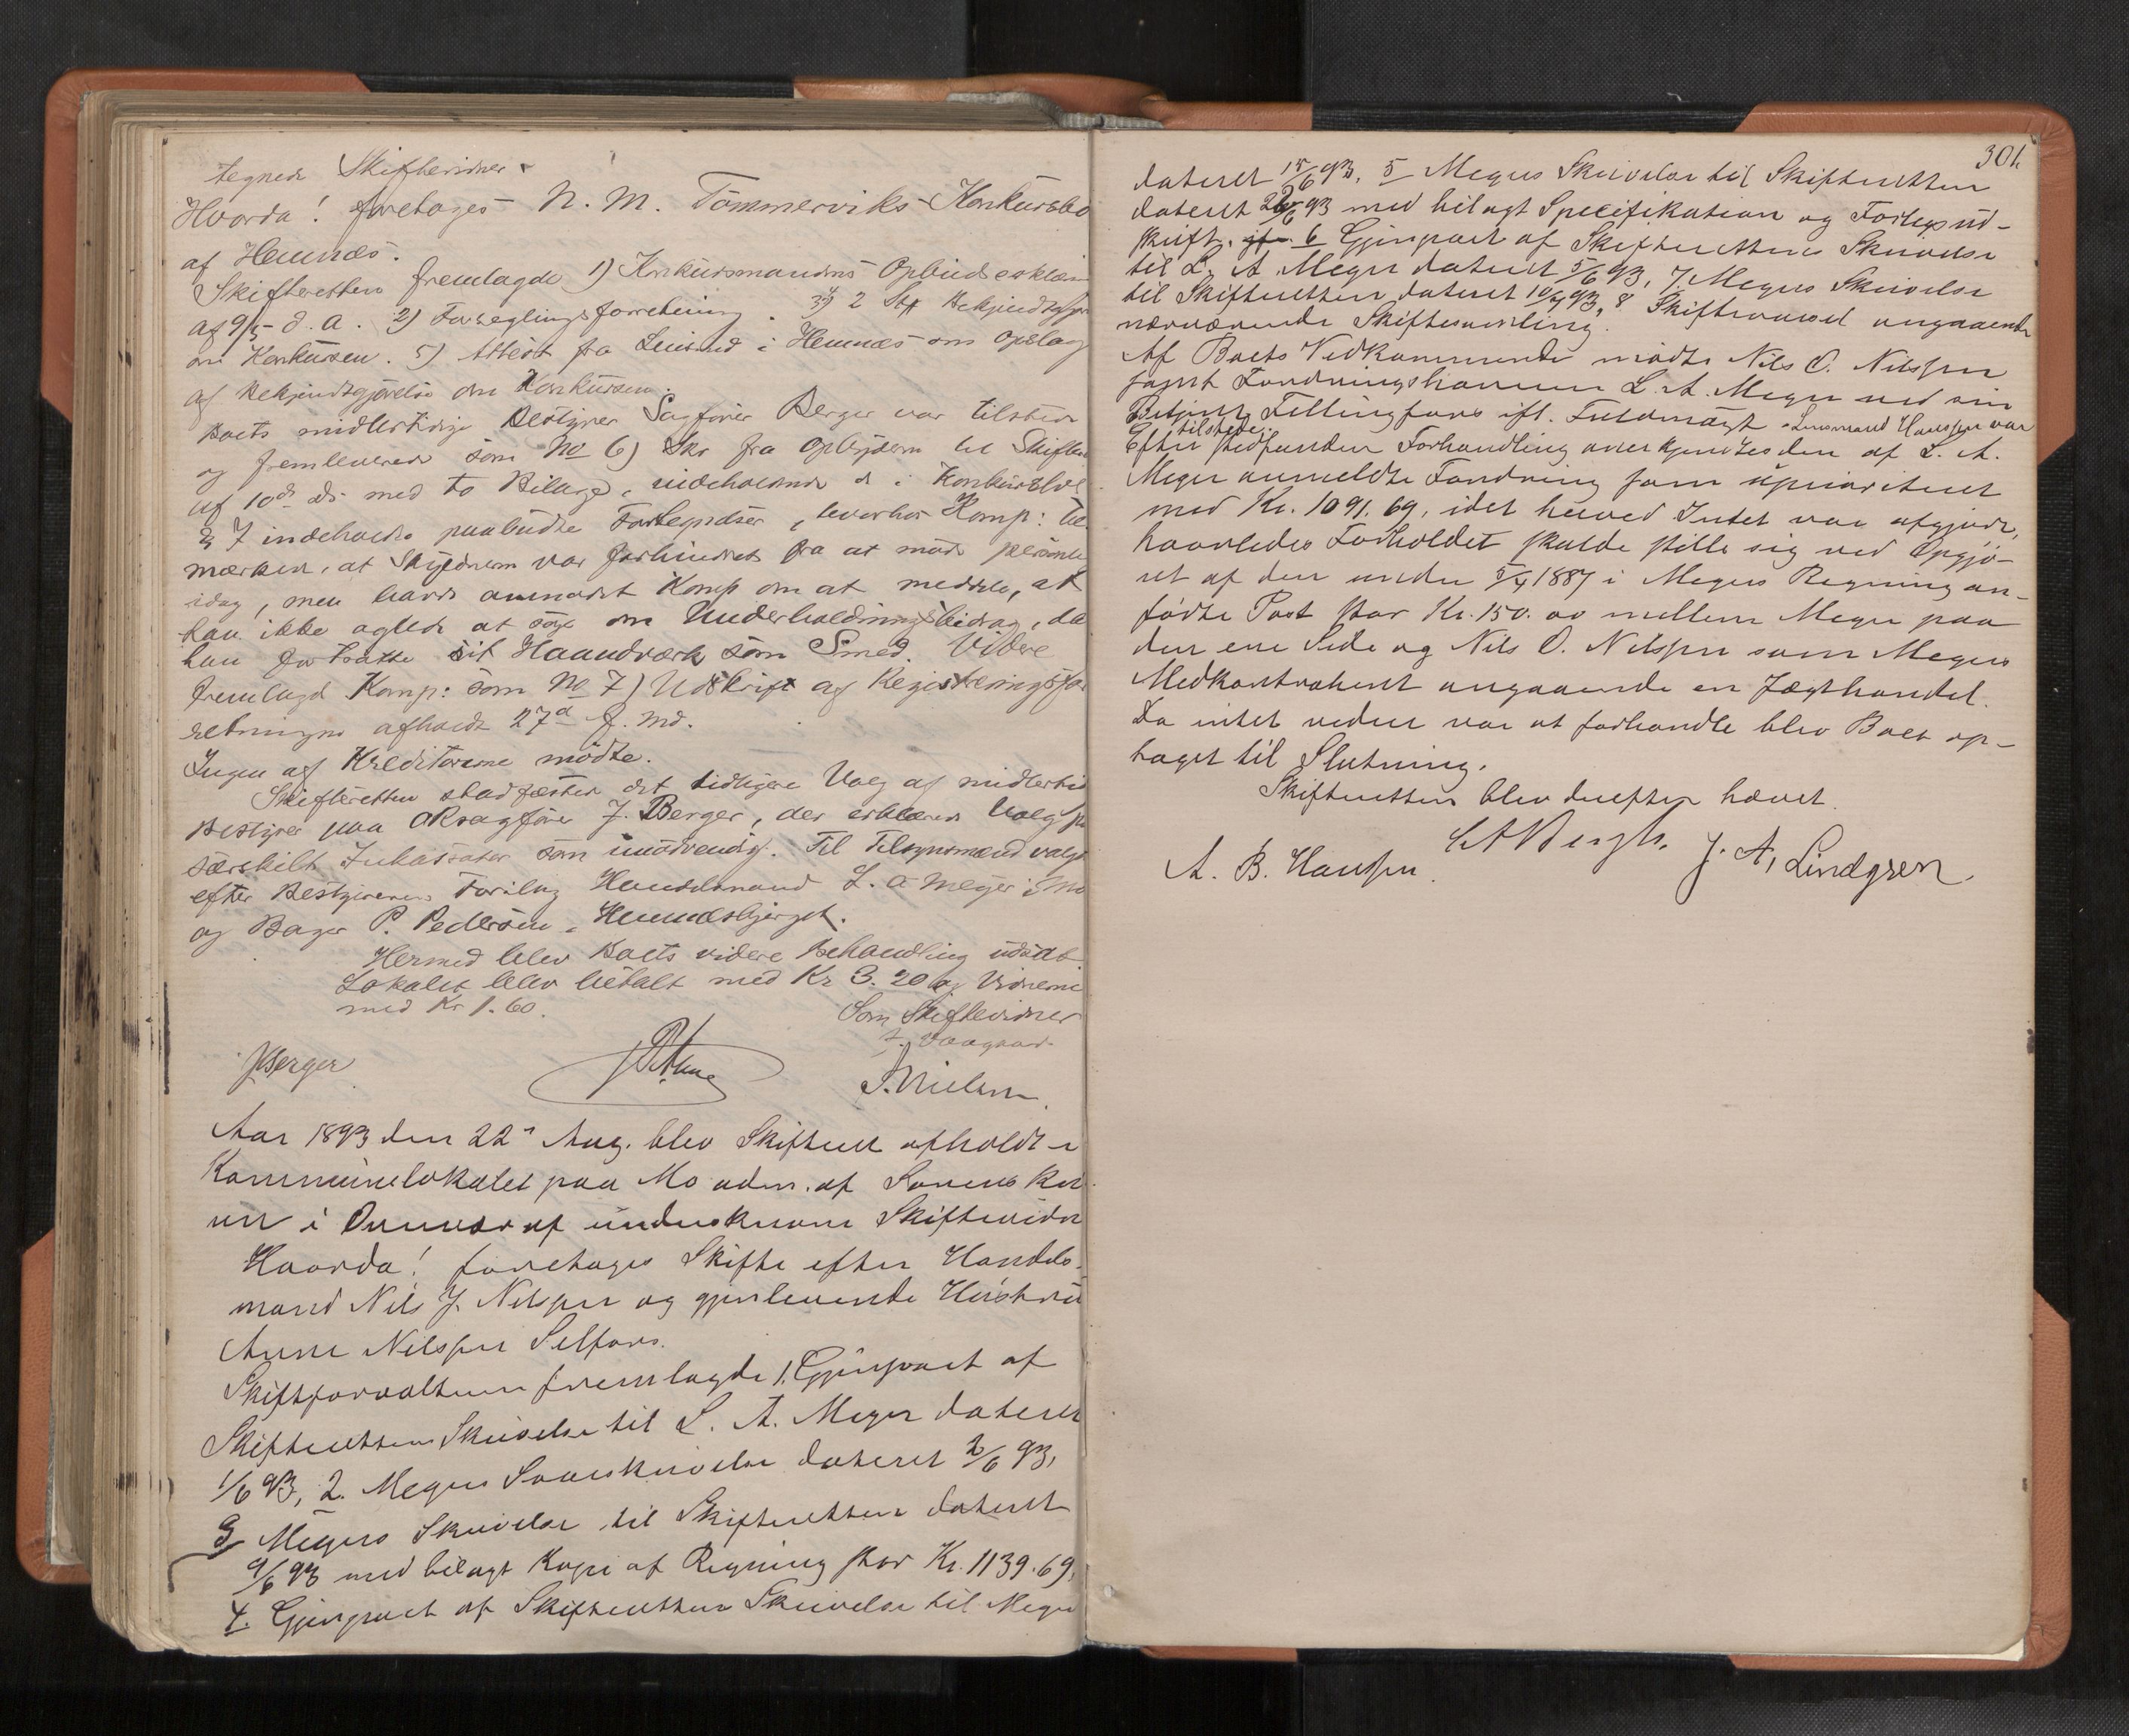 tegnede Skiftevidner.
Hvorda! foretoges N. M. Tömmerviks Konkursbo
af Hemnæs.
Skifteretten fremlagde 1) Konkursmandens Opbudserklæring
af 9/5 d. A. 2) Forseglingsforretning. 3-4) 2 Stk Bekjendtgjør
om Konkursen. 5) Attest fra Lensmd i Hemnæs om Opslag
af Bekjendtgjørelse om Konkursen.
Boets midlertidige Bestyrer Sagfører Berger var tilstede
og fremleverede som No 6) Skr fra Opbyderen til Skifter
af 10de ds med to Bilage, indeholdende de i Konkursloven
§ 7 indeholdte paabudte Fortegnelser, hvorhos Komp: be
mærkede, at Skyldneren var forhindret fra at møde personlig
idag, men havde anmodet Komp om at meddele, at
han ikke agtede at søge om Underholdningsbidrag, da
han fortsatte sit Haandværk som Smed. Videre
fremlagde Komp: som No 7) Udskrift af Registreringsfor
retningen afholdt 27de f. Md.
Ingen af Kreditorerne mødte.
Skifteretten stadfæstede det tidligere Valg af midlertid
Bestyrer paa ORsagfører J. Berger, der erklærede Valg på
særskilt Inkassator som unødvendig. Til Tilsynsmænd valgtes
efter Bestyrerens Forslag Handelsmand L. A Meyer i Mo
og Bager P. Pedersen, Hemnæsbjerget.
Hermed blev Boets videre Behandling udsat
Lokalet blev betalt med Kr 3.20 og Vidnerne
med Kr 1.60.
Som Skiftevidner
J. Vaagaard
JBerger
S. Nielsen.
Aar 1893 den 22de Aug. blev Skifteret afholdt i
Kommunelokalet paa Mo adm. af Sorens kri
ver i overvær af underskrevne Skiftevidner
Hvorda! foretoges Skifte efter Handels-
mand Nils J. Nilssen og gjenlevende Hustru
Anne Nilssen Selfors.
Skifteforvalteren fremlagde 1. Gjenpart af
Skifterettens Skrivelse til L. A. Meyer dateret
1/6 93, 2. Meyers Svarskrivelse dateret 2/6 93,
3 Meyers Skrivelse til Skifteretten dateret
9/6 93 med bilagt Kopi af Regning stor Kr. 1139.69,
4. Gjenpart af Skifterettens Skrivelse til Meyer
301.
dateret 15/6 93, 5 Meyers Skrivelse til Skifteretten
dateret 26/6 93 med bilagt Specifikation og Forligsud-
skrift, 6 Gjenpart af Skifterettens Skrivelse
til L. A. Meyer dateret 5/6 93, 7. Meyers Skrivelse
til Skifteretten dateret 10/7 93, 8 Skiftevarsel angaaende
nærværende Skiftesamling.
Af Boets Vedkommende mødte Nils O. Nilssen
samt Fordringshaveren L. A. Meyer ved sin
Betjent Fellingfors ifl. Fuldmagt. Lensmand Hanssen var
tilstede.
Efter stedfunden Forhandling anerkjendtes den af L. A.
Meyer anmeldte Fordring som uprioriteret
med Kr. 1091.69, idet herved Intet var afgjort,
hvorledes Forholdet skulde stille sig ved Opgjö-
ret af den under 5/4 1887 i Meyers Regning an-
førte Post stor Kr. 150.00 mellem Meyer paa
den ene Side og Nils O. Nilssen som Meyers
Medkontrahent angaaende en Jægthandel.
Da intet videre var at forhandle blev Boet op-
taget til Slutning.
Skifteretten blev derefter hævet.
A. B. Hanssen.
J. A. Lindgren.